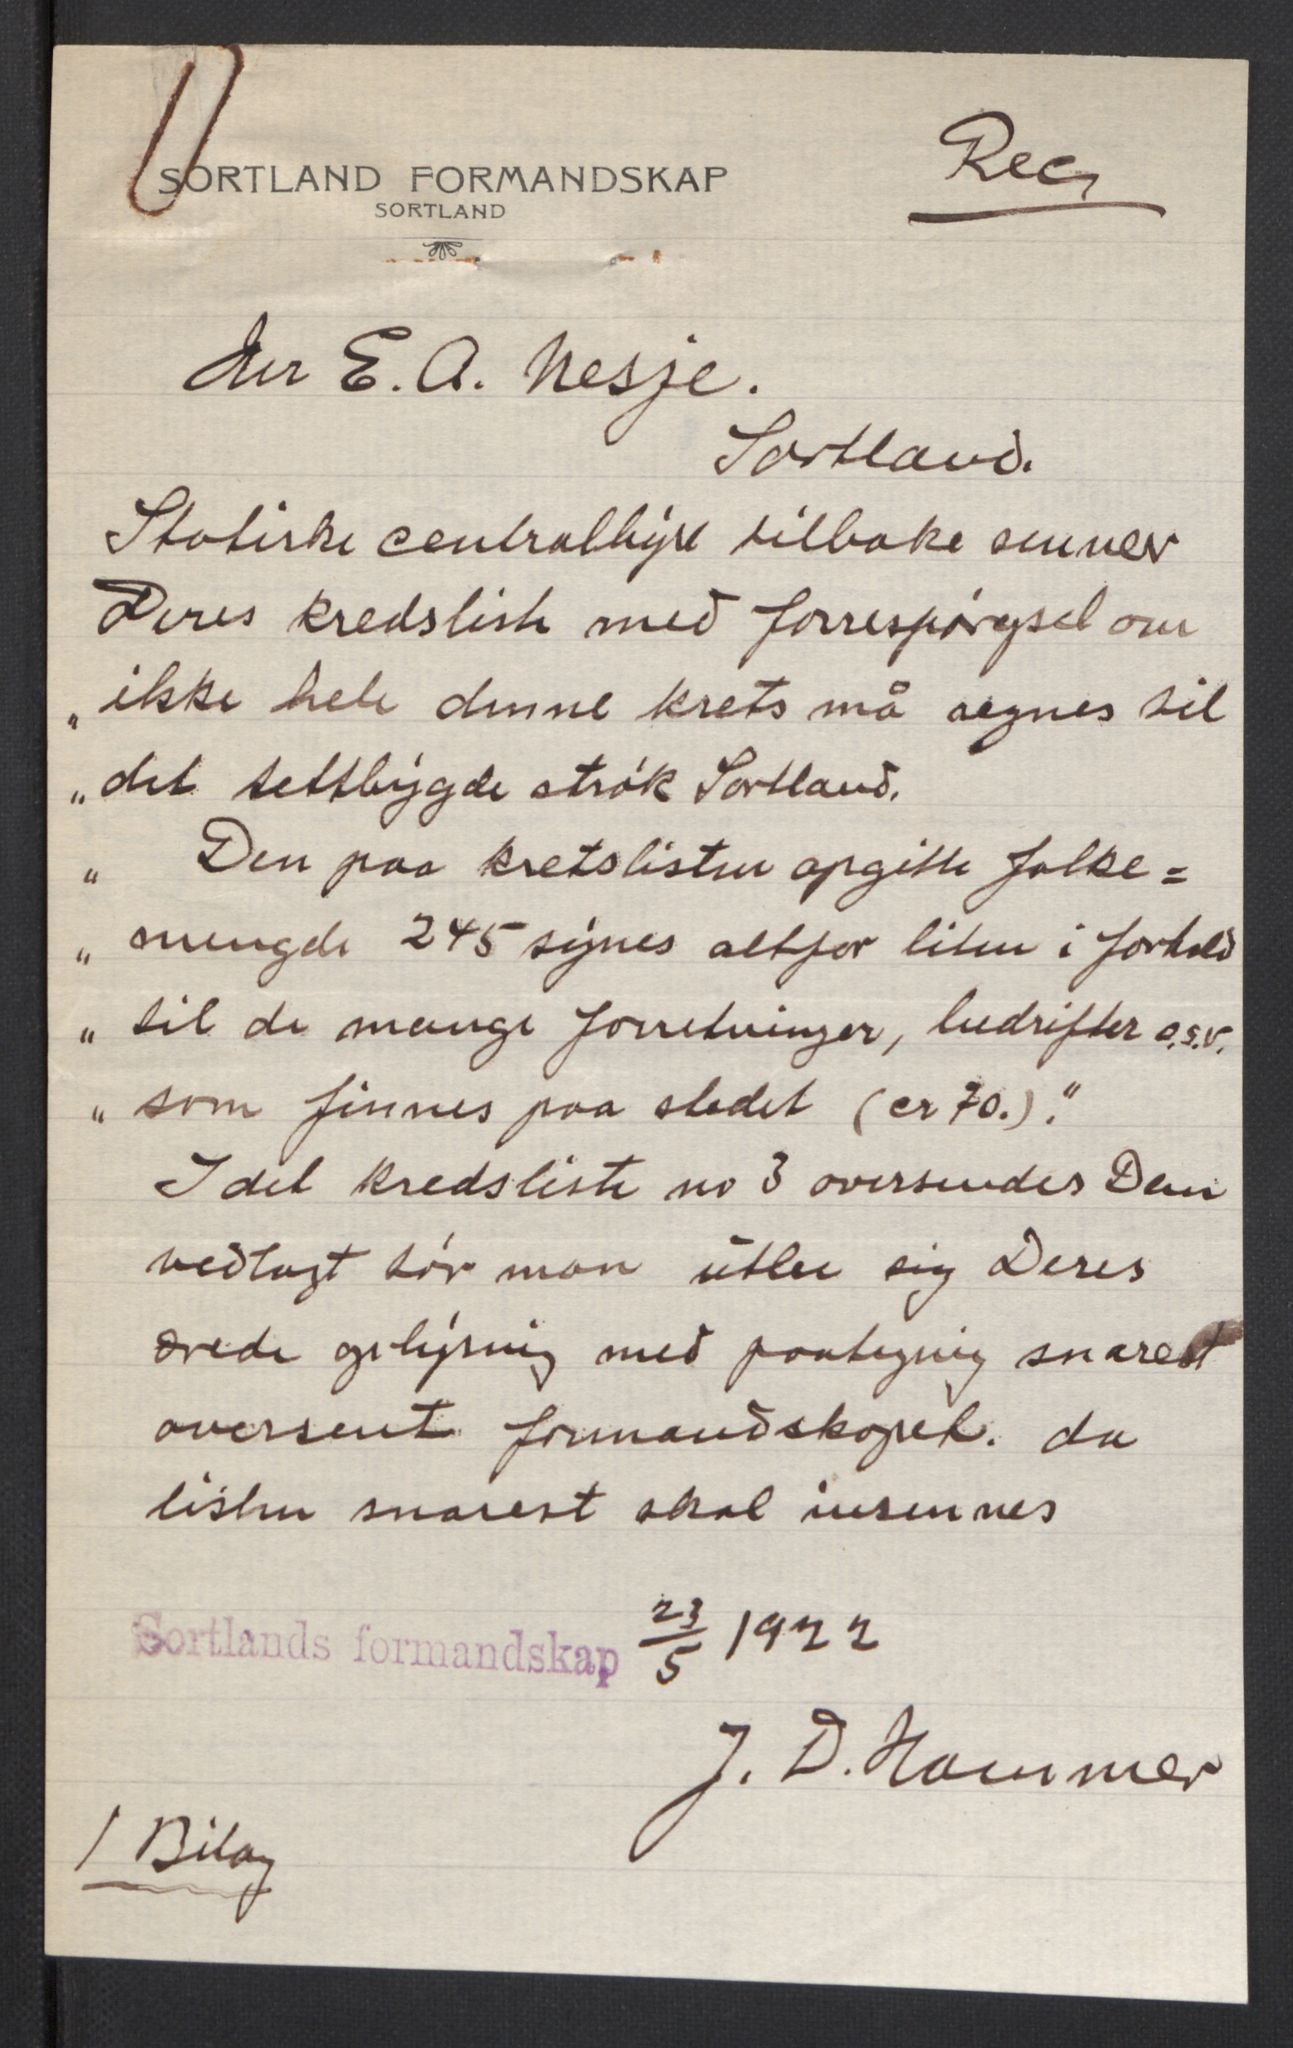 SORTLAND FORMANDSKAP
SORTLAND
Rec
Hr E. A. Nesje.
Sortland.
Statiske centralbyre tilbake senner
Deres kredsliste med forrespørgsel om
„ ikke hele denne krets må regnes til
„ det tettbygde strøk Sortland.
„ Den paa kretslisten opgitte folke=
„ mengde 245 synes altfor liten i forhold
„ til de mange forretninger, bedrifter o.s.v.
„ som finnes paa stedet (cr 70.)."
I det kredsliste no 3 oversendes Dem
vedlagt tør man utbe sig Deres
ærede oplysning med paategnig snarest
oversent formandskapet. da
listen snarest skal insennes
Sortlands formandskap 23/5 1922
J. D. Hammer
1 Bilag